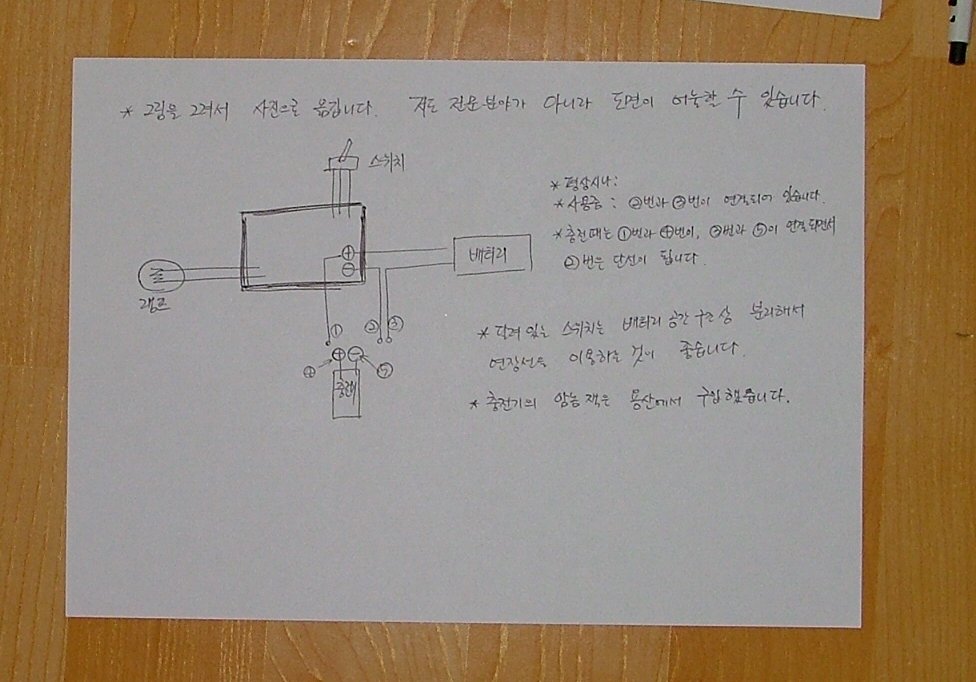 * 그림을 그려서 사진으로 옮깁니다. 저도 전문분야가 아니라 도면이 어눌할 수 있습니다.
스위치
* 평상시나:
* 사용중 : ②번과 ③번이 연결되어 있습니다.
* 충전때는 ①번과 ④번이, ③번과 ⑤이 연결되면서
②번은 단선이 됩니다.
⊕
⊖
배터리
램프
① ② ③
⊕ ⊖
④ ⑤
충전기
* 달려있는 스위치는 배터리 공간 구조상 분리해서
연장선을 이용하는 것이 좋습니다.
* 충전기의 암놈 잭은 용산에서 구입했습니다.